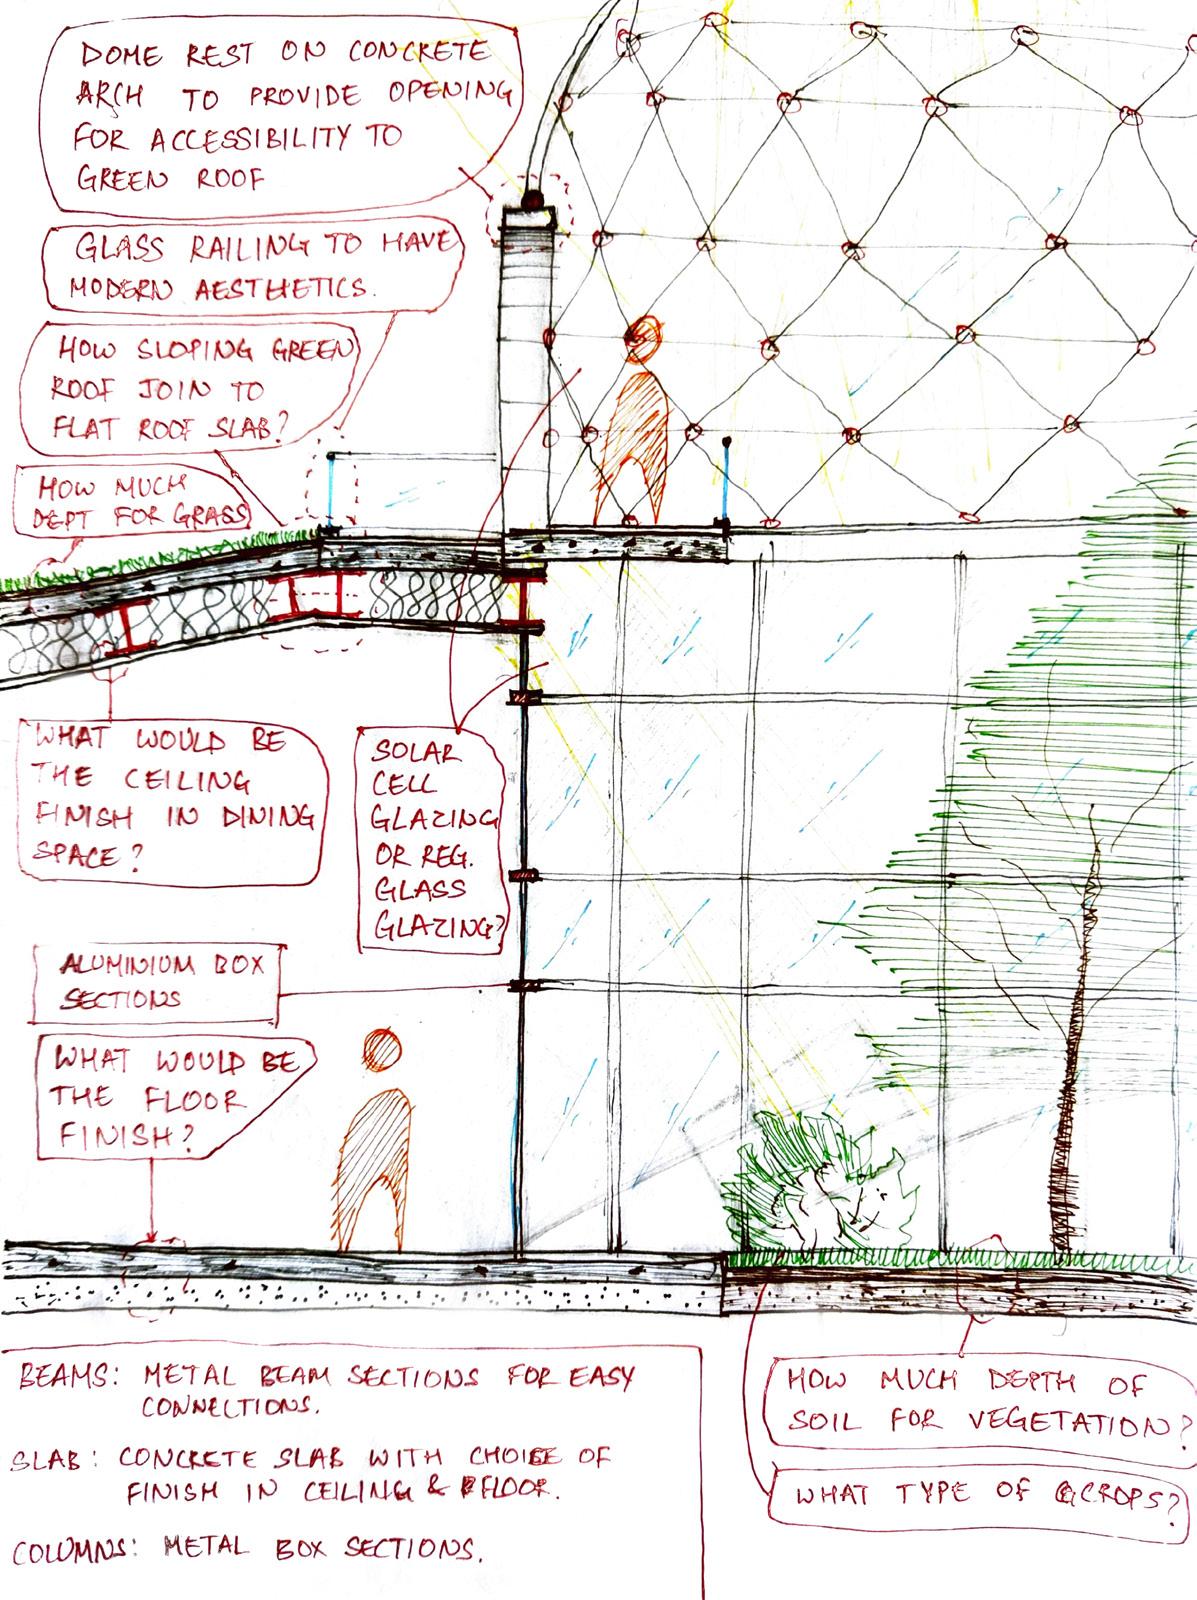 DOME REST ON CONCRETE
ARCH TO PROVIDE OPENING
FOR ACCESSIBILITY TO
GREEN ROOF
GLASS RAILING TO HAVE
MODERN AESTHETICS.
HOW SLOPING GREEN
ROOF JOIN TO
FLAT ROOF SLAB?
HOW MUCH
DEPT FOR GRASS
WHAT WOULD BE
THE CEILING
FINISH IN DINING
SPACE?
SOLAR
CELL
GLAZING
OR REG.
GLASS
GLAZING?
ALUMINIUM BOX
SECTIONS
WHAT WOULD BE
THE FLOOR
FINISH?
BEAMS: METAL BEAM SECTIONS FOR EASY
CONNECTIONS.
SLAB: CONCRETE SLAB WITH CHOICE OF
FINISH IN CEILING & FLOOR.
COLUMNS: METAL BOX SECTIONS.
HOW MUCH DEPTH OF
SOIL FOR VEGETATION?
WHAT TYPE OF CROPS?